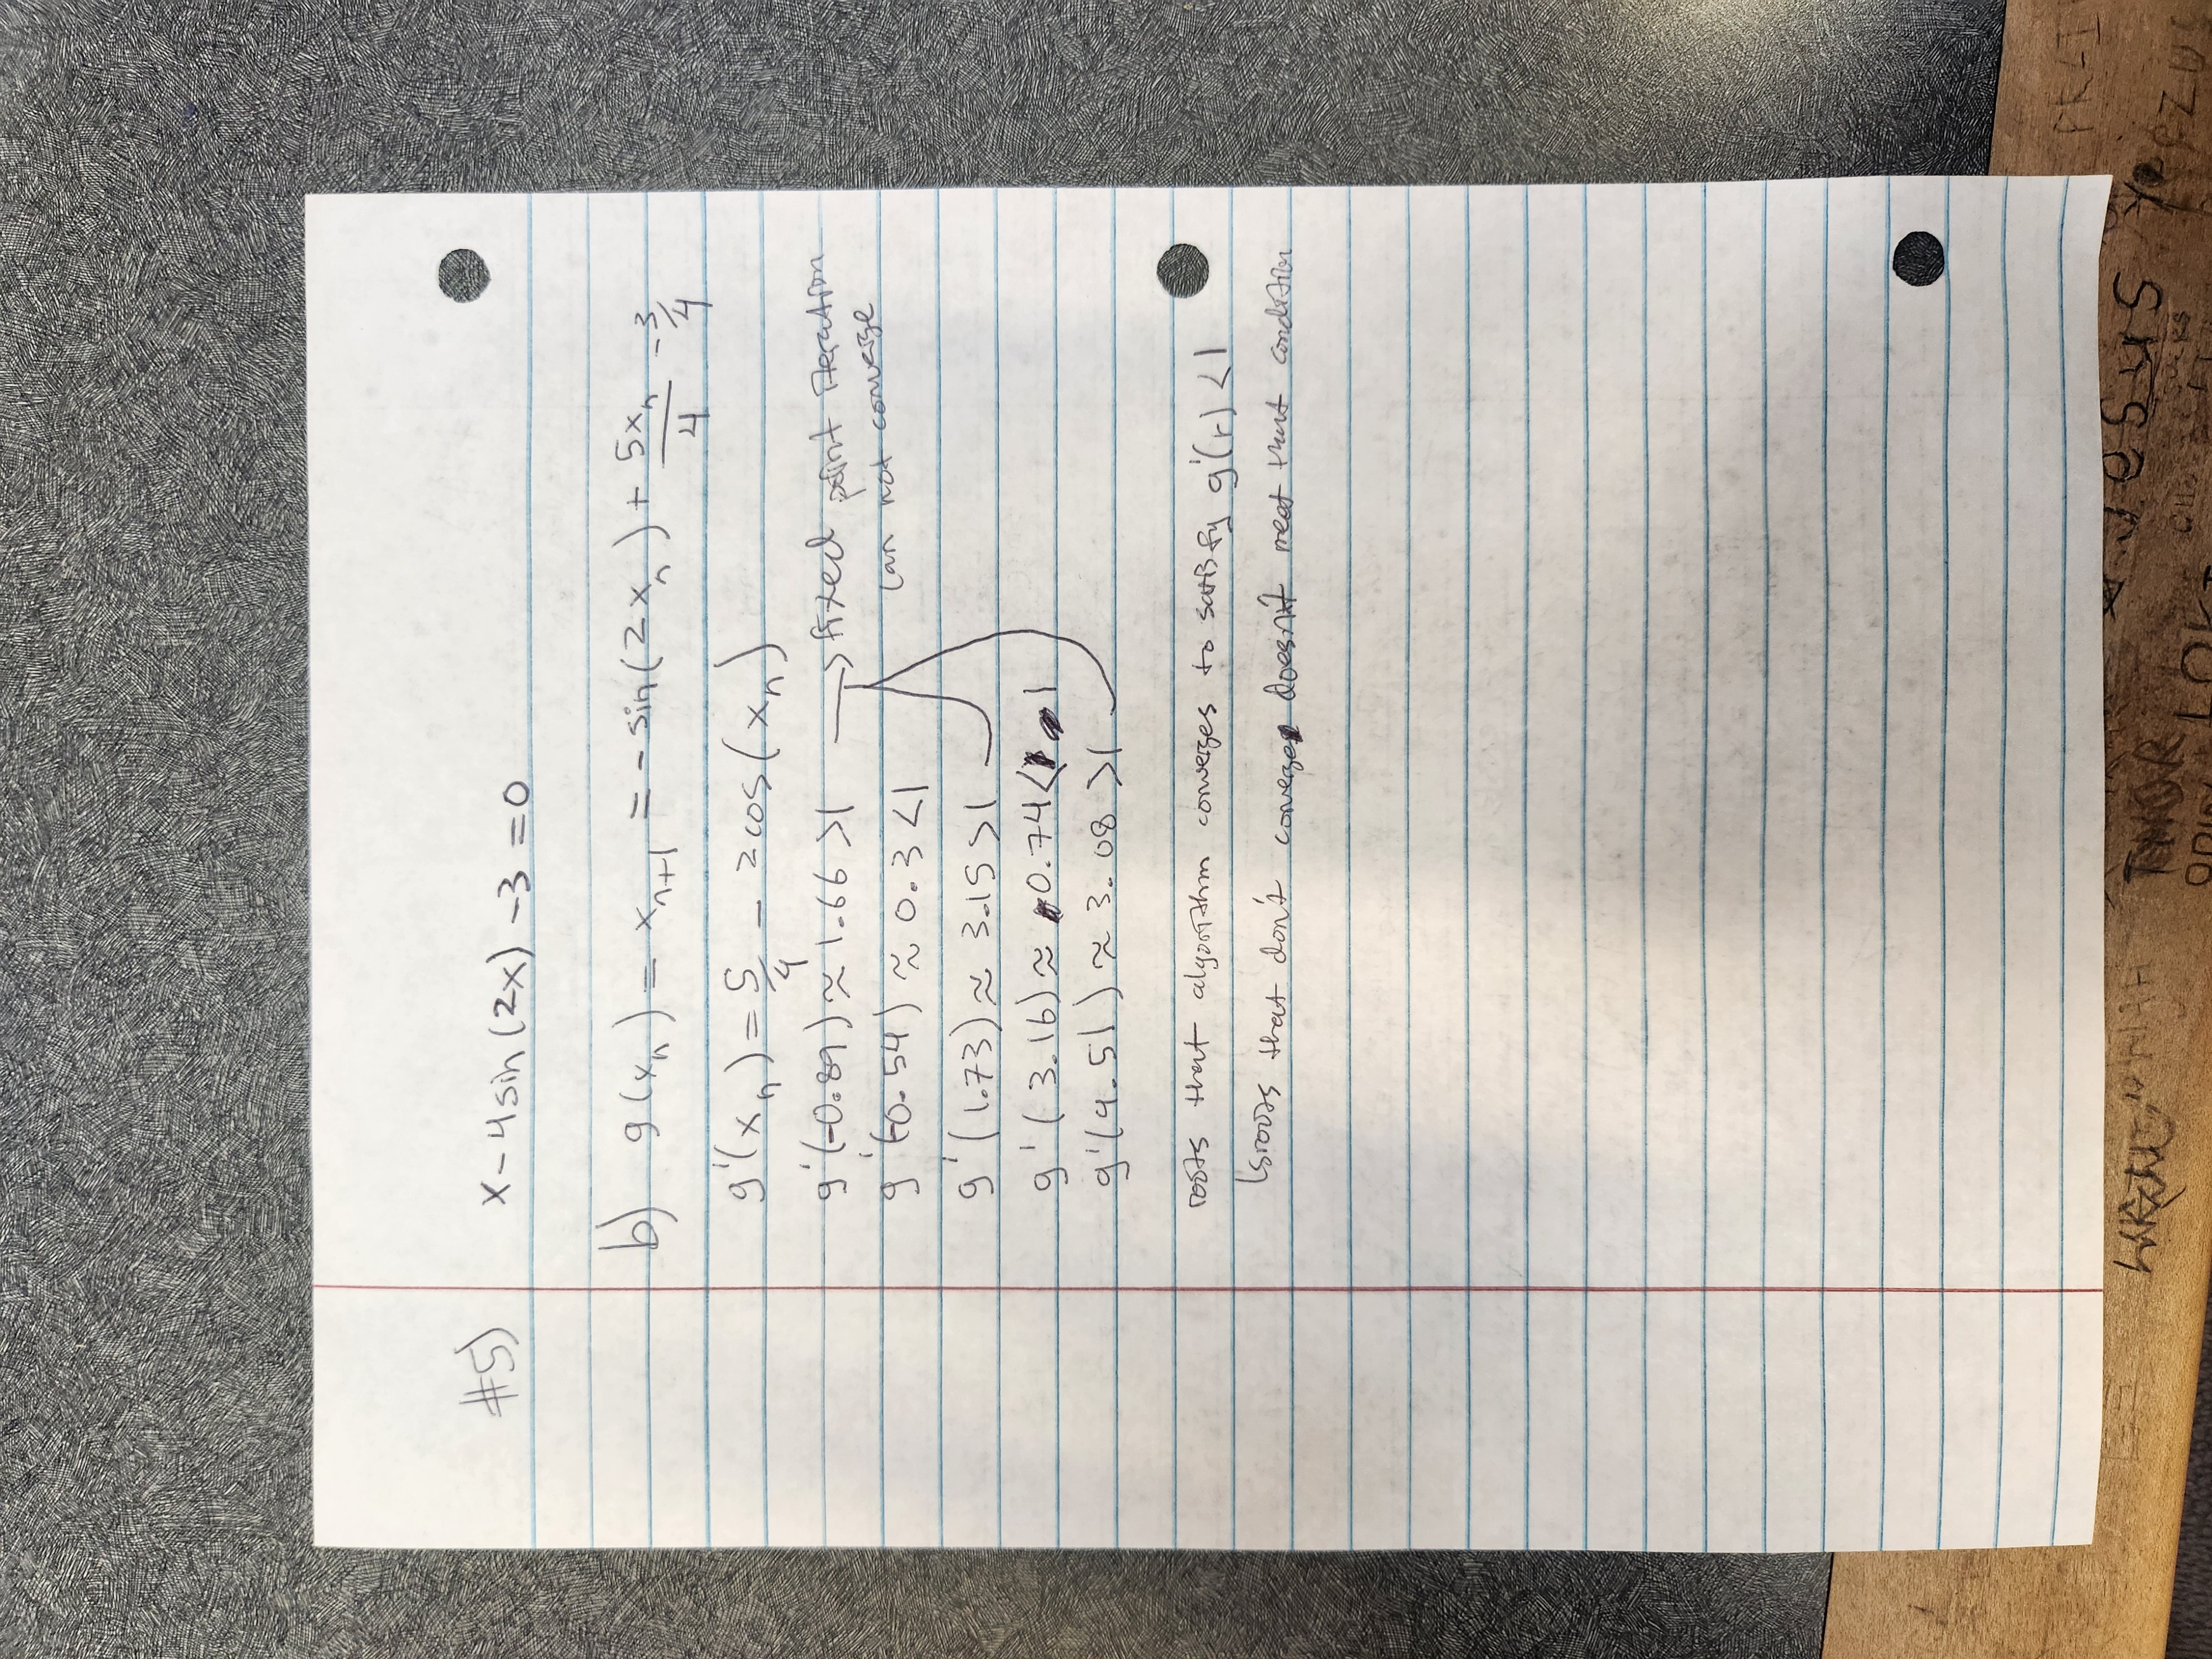 #5) x-4sin(2x) -3 =0
b) g(xₙ) = xₙ₊₁ = -sin(2xₙ) + 5xₙ/4 - 3/4
g'(xₙ) = 5/4 - 2cos(xₙ)
g'(-0.89) ≈ 1.66 >1 → fixed point iteration
can not converge
g'(-0.54) ≈ 0.3 <1
g'(1.73) ≈ 3.15 >1
g'(3.16) ≈ 0.74 < 1
g'(4.51) ≈ 3.08 >1
roots that algorithm converges to satisfy g'(r) <1
↳ roots that don't converge doesn't meet that condition
PR-I
THOR
ODIN
LOKI